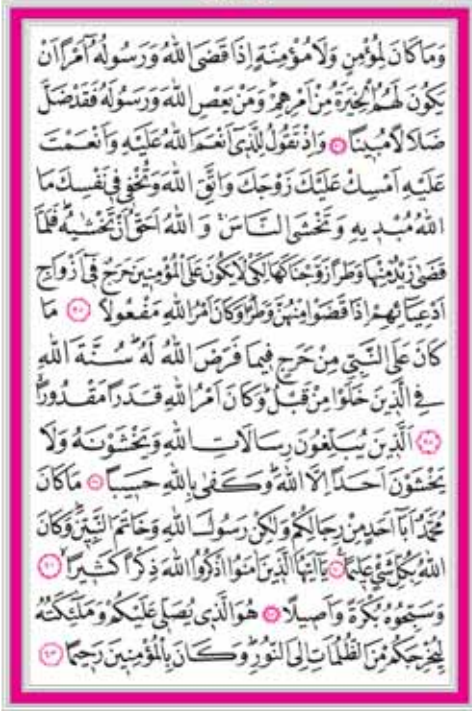 وَمَا كَانَ لِمُؤْمِنٍ وَلَا مُؤْمِنَةٍ اِذَا قَضَى اللّٰهُ وَرَسُولُهُٓ اَمْرًا اَنْ
يَكُونَ لَهُمُ الْخِيَرَةُ مِنْ اَمْرِهِمْۜ وَمَنْ يَعْصِ اللّٰهَ وَرَسُولَهُ فَقَدْ ضَلَّ
ضَلَالًا مُبِينًا ﴿٣٦﴾ وَاِذْ تَقُولُ لِلَّذِٓي اَنْعَمَ اللّٰهُ عَلَيْهِ وَاَنْعَمْتَ
عَلَيْهِ اَمْسِكْ عَلَيْكَ زَوْجَكَ وَاتَّقِ اللّٰهَ وَتُخْفِي فِي نَفْسِكَ مَا
اللّٰهُ مُبْدِيهِ وَتَخْشَى النَّاسَۚ وَاللّٰهُ اَحَقُّ اَنْ تَخْشٰيهُۜ فَلَمَّا
قَضٰى زَيْدٌ مِنْهَا وَطَرًا زَوَّجْنَاكَهَا لِكَيْ لَا يَكُونَ عَلَى الْمُؤْمِنِينَ حَرَجٌ فِٓي اَزْوَاجِ
اَدْعِيَٓائِهِمْ اِذَا قَضَوْا مِنْهُنَّ وَطَرًاۜ وَكَانَ اَمْرُ اللّٰهِ مَفْعُولًا ﴿٣٧﴾ مَا
كَانَ عَلَى النَّبِيِّ مِنْ حَرَجٍ فِيمَا فَرَضَ اللّٰهُ لَهُۜ سُنَّةَ اللّٰهِ
فِي الَّذِينَ خَلَوْا مِنْ قَبْلُۜ وَكَانَ اَمْرُ اللّٰهِ قَدَرًا مَقْدُورًاۙ
﴿٣٨﴾ اَلَّذِينَ يُبَلِّغُونَ رِسَالَاتِ اللّٰهِ وَيَخْشَوْنَهُ وَلَا
يَخْشَوْنَ اَحَدًا اِلَّا اللّٰهَۜ وَكَفٰى بِاللّٰهِ حَسِيبًا ﴿٣٩﴾ مَا كَانَ
مُحَمَّدٌ اَبَٓا اَحَدٍ مِنْ رِجَالِكُمْ وَلٰكِنْ رَسُولَ اللّٰهِ وَخَاتَمَ النَّبِيِّنَۜ وَكَانَ
اللّٰهُ بِكُلِّ شَيْءٍ عَلِيمًا ﴿٤٠﴾ يَٓا اَيُّهَا الَّذِينَ اٰمَنُوا اذْكُرُوا اللّٰهَ ذِكْرًا كَثِيرًاۙ ﴿٤١﴾
وَسَبِّحُوهُ بُكْرَةً وَاَصِيلًا ﴿٤٢﴾ هُوَ الَّذِي يُصَلِّي عَلَيْكُمْ وَمَلٰٓئِكَتُهُ
لِيُخْرِجَكُمْ مِنَ الظُّلُمَاتِ اِلَى النُّورِۜ وَكَانَ بِالْمُؤْمِنِينَ رَحِيمًا ﴿٤٣﴾